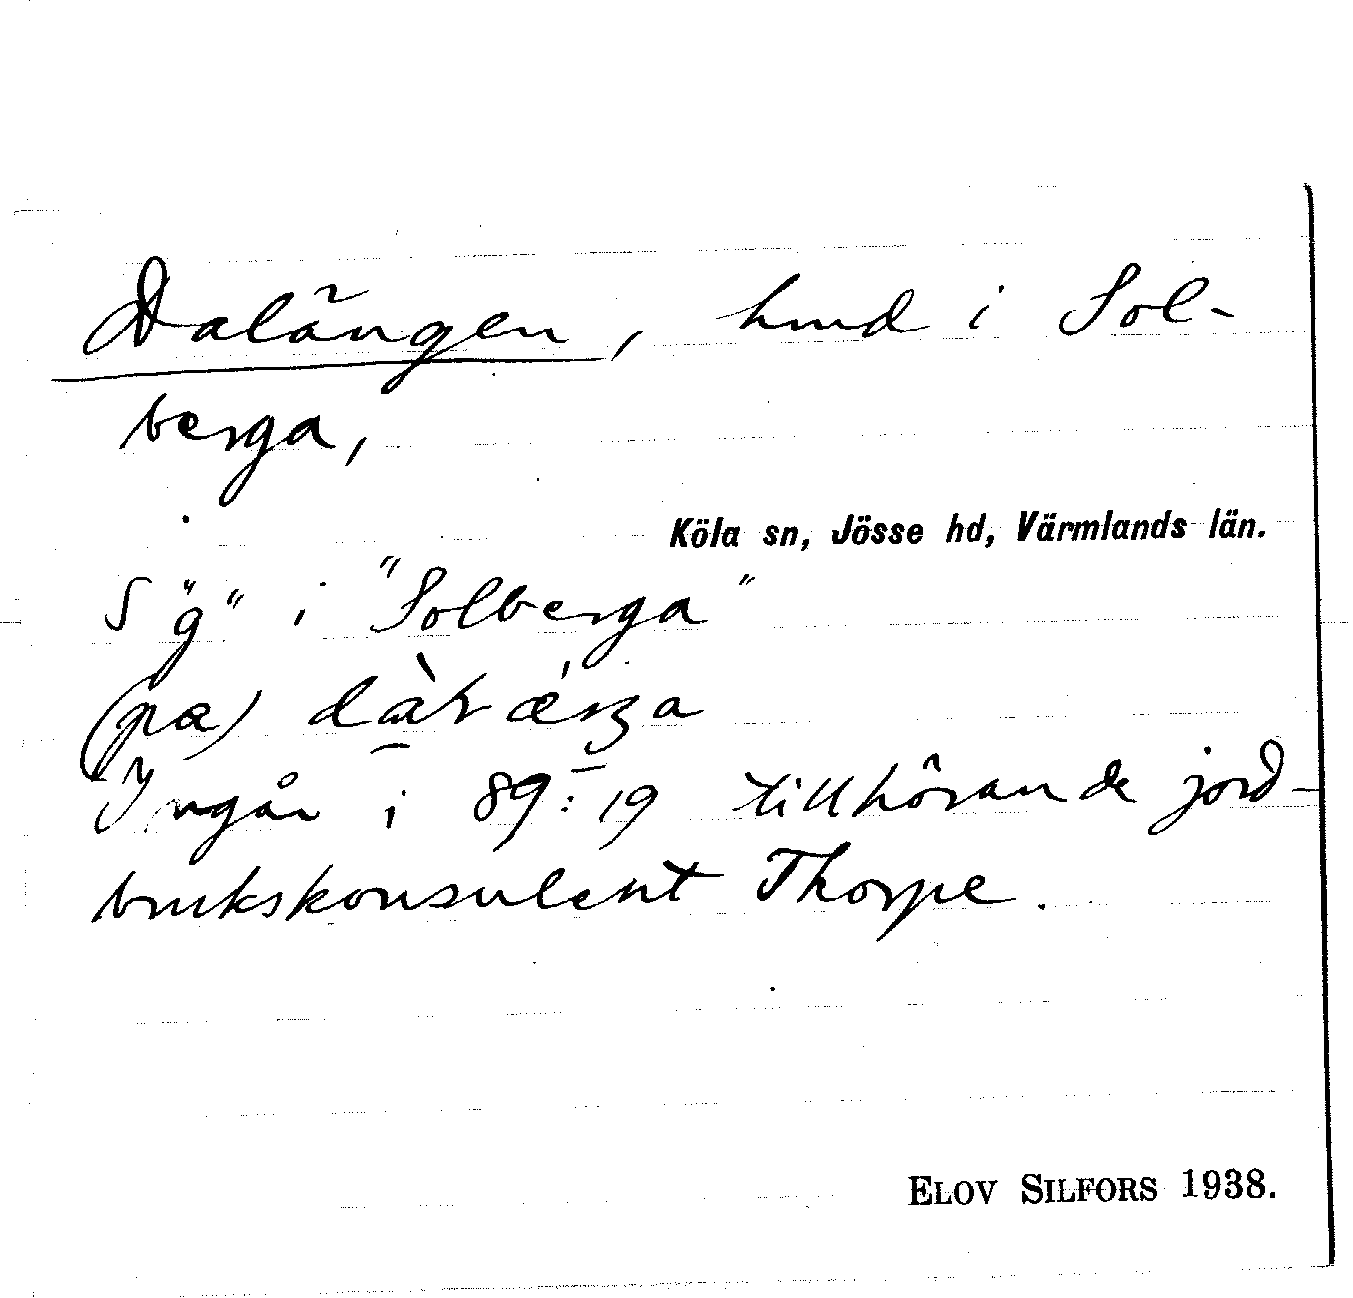 Dalängen, hmd i Sol-
berga,
Köla sn, Jösse hd, Värmlands län.
S "g" i "Solberga"
(pa)
Ingår i 89:19 tillhörande jord-
brukskonsulent Thorpe.
ELOV SILFORS 1938.